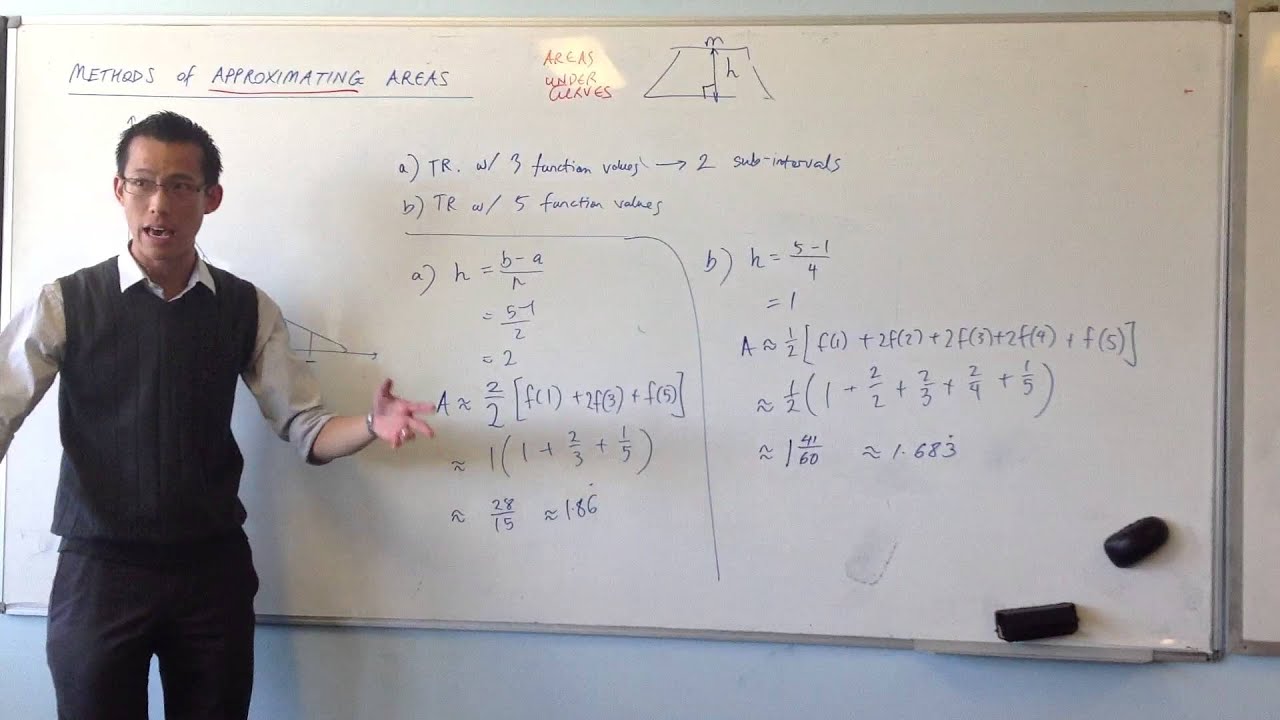 METHODS of APPROXIMATING AREAS
AREAS
UNDER
CURVES
m
h
a) TR. w/ 3 function values → 2 sub-intervals
b) TR w/ 5 function values
a) h = b-a/n
= 5-1/2
= 2
A ≈ 2/2 [f(1) + 2f(3) + f(5)]
≈ 1(1 + 2/3 + 1/5)
≈ 28/15 ≈ 1.86̇
b) h = 5-1/4
= 1
A ≈ 1/2 [f(1) + 2f(2) + 2f(3) + 2f(4) + f(5)]
≈ 1/2 (1 + 2/2 + 2/3 + 2/4 + 1/5)
≈ 1 41/60 ≈ 1.683̇